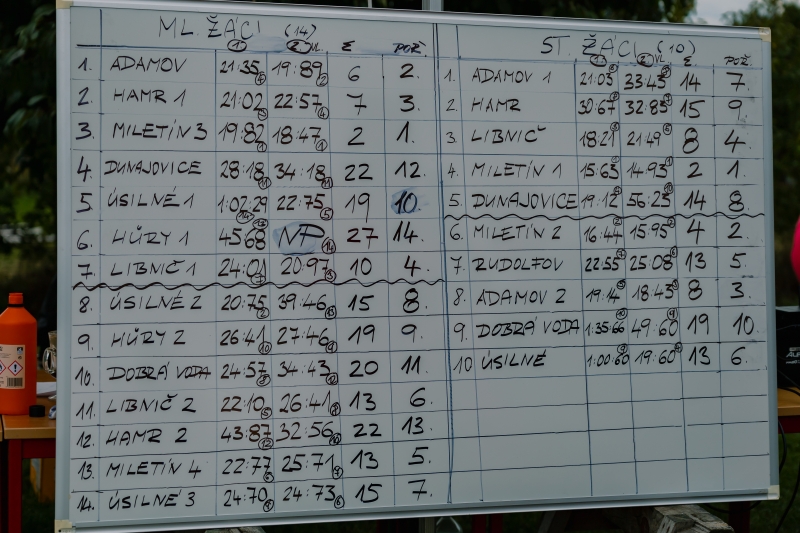 ML. ŽÁCI (14)
1 2 VL. Σ POŘ.
1. ADAMOV 21:35 19:89 6 2.
2. HAMR 1 21:02 22:57 7 3.
3. MILETÍN 3 19:82 18:47 2 1.
4. DUNAJOVICE 28:18 34:18 22 12.
5. ÚSILNÉ 1 1:02:29 22:75 19 10.
6. HŮRY 1 45:68 NP 27 14.
7. LIBNIČ 1 24:01 20:97 10 4.
8. ÚSILNÉ 2 20:75 39:46 15 8.
9. HŮRY 2 26:41 27:46 19 9.
10. DOBRÁ VODA 24:57 34:43 20 11.
11. LIBNIČ 2 22:10 26:41 13 6.
12. HAMR 2 43:87 32:56 22 13.
13. MILETÍN 4 22:77 25:71 13 5.
14. ÚSILNÉ 3 24:70 24:73 15 7.
ST. ŽÁCI (10)
1 2 VL. Σ POŘ.
1. ADAMOV 1 21:03 33:43 14 7.
2. HAMR 30:67 32:83 15 9.
3. LIBNIČ 18:21 21:49 8 4.
4. MILETÍN 1 15:63 14:93 2 1.
5. DUNAJOVICE 19:12 56:23 14 8.
6. MILETÍN 2 16:44 15:95 4 2.
7. RUDOLFOV 22:55 25:08 13 5.
8. ADAMOV 2 19:14 18:43 8 3.
9. DOBRÁ VODA 1:35:66 49:60 19 10.
10 ÚSILNÉ 1:00:60 19:60 13 6.